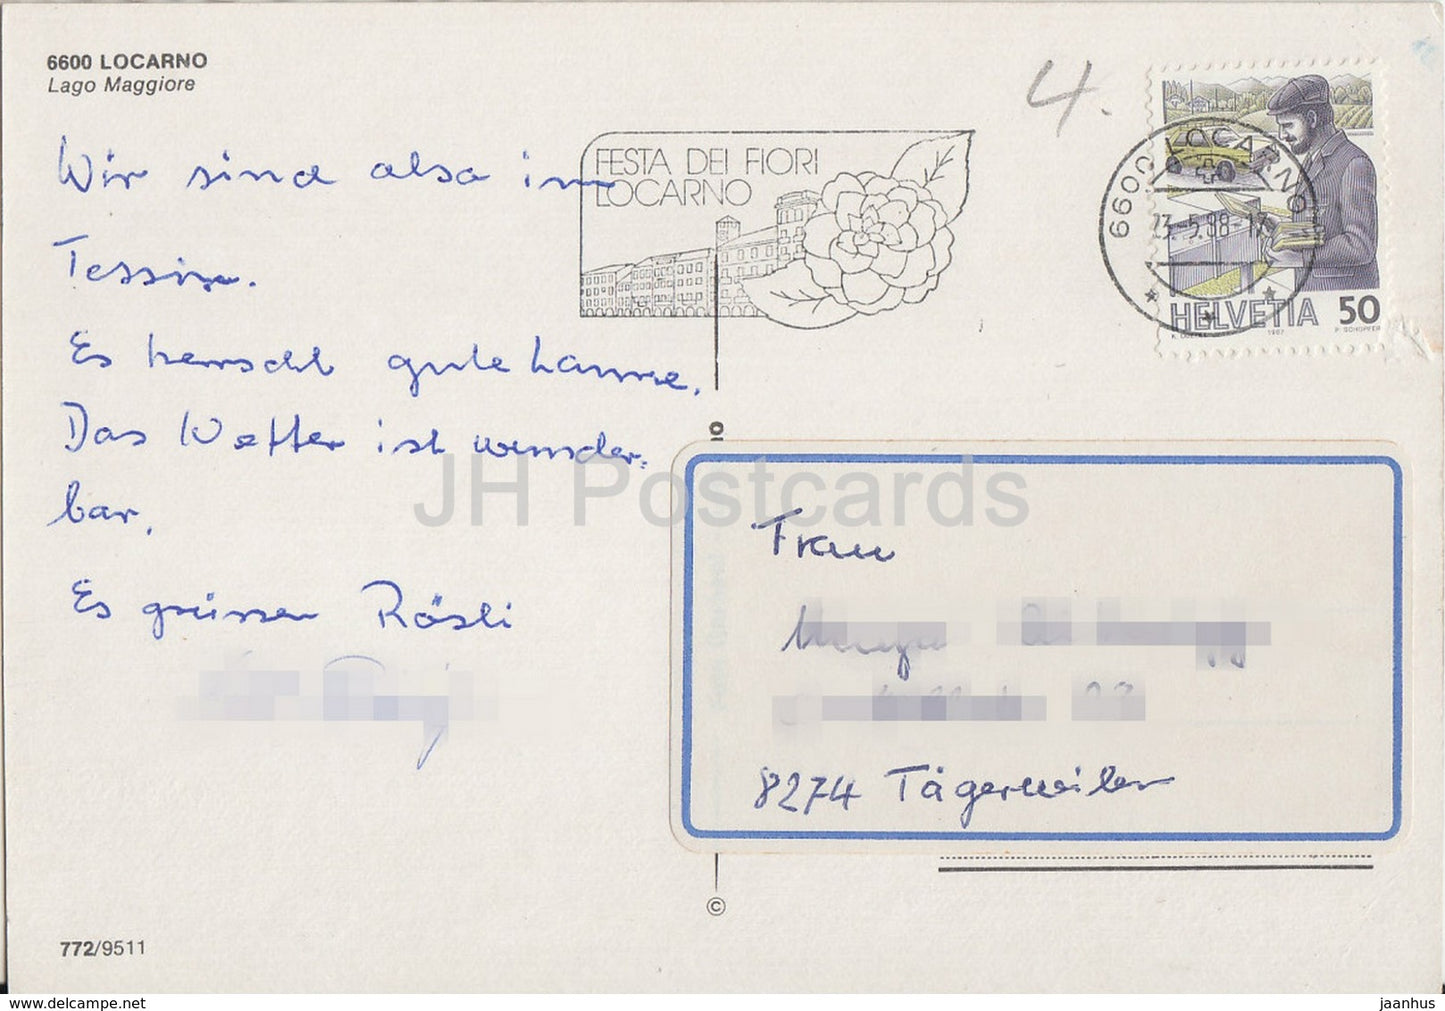 6600 LOCARNO
Lago Maggiore
4.
FESTA DEI FIORI
LOCARNO
6600 LOCARNO
23.-5.88-17
HELVETIA 50
1987 P. SCHOPFER
Wir sind also im
Tessin.
Es herrscht gute Laune.
Das Wetter ist wunder-
bar.
Es grüssen Rösli
JH Postcards
Frau
8274 Tägerweilen
©
772/9511
www.delcampe.net
jaanhus